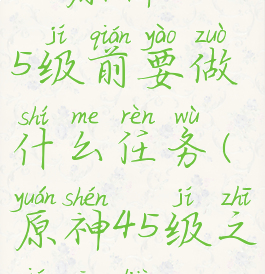 jí qián yào zuò
5级前要做
shí me rèn wù
什么任务(
yuán shén jí zhī
原神45级之